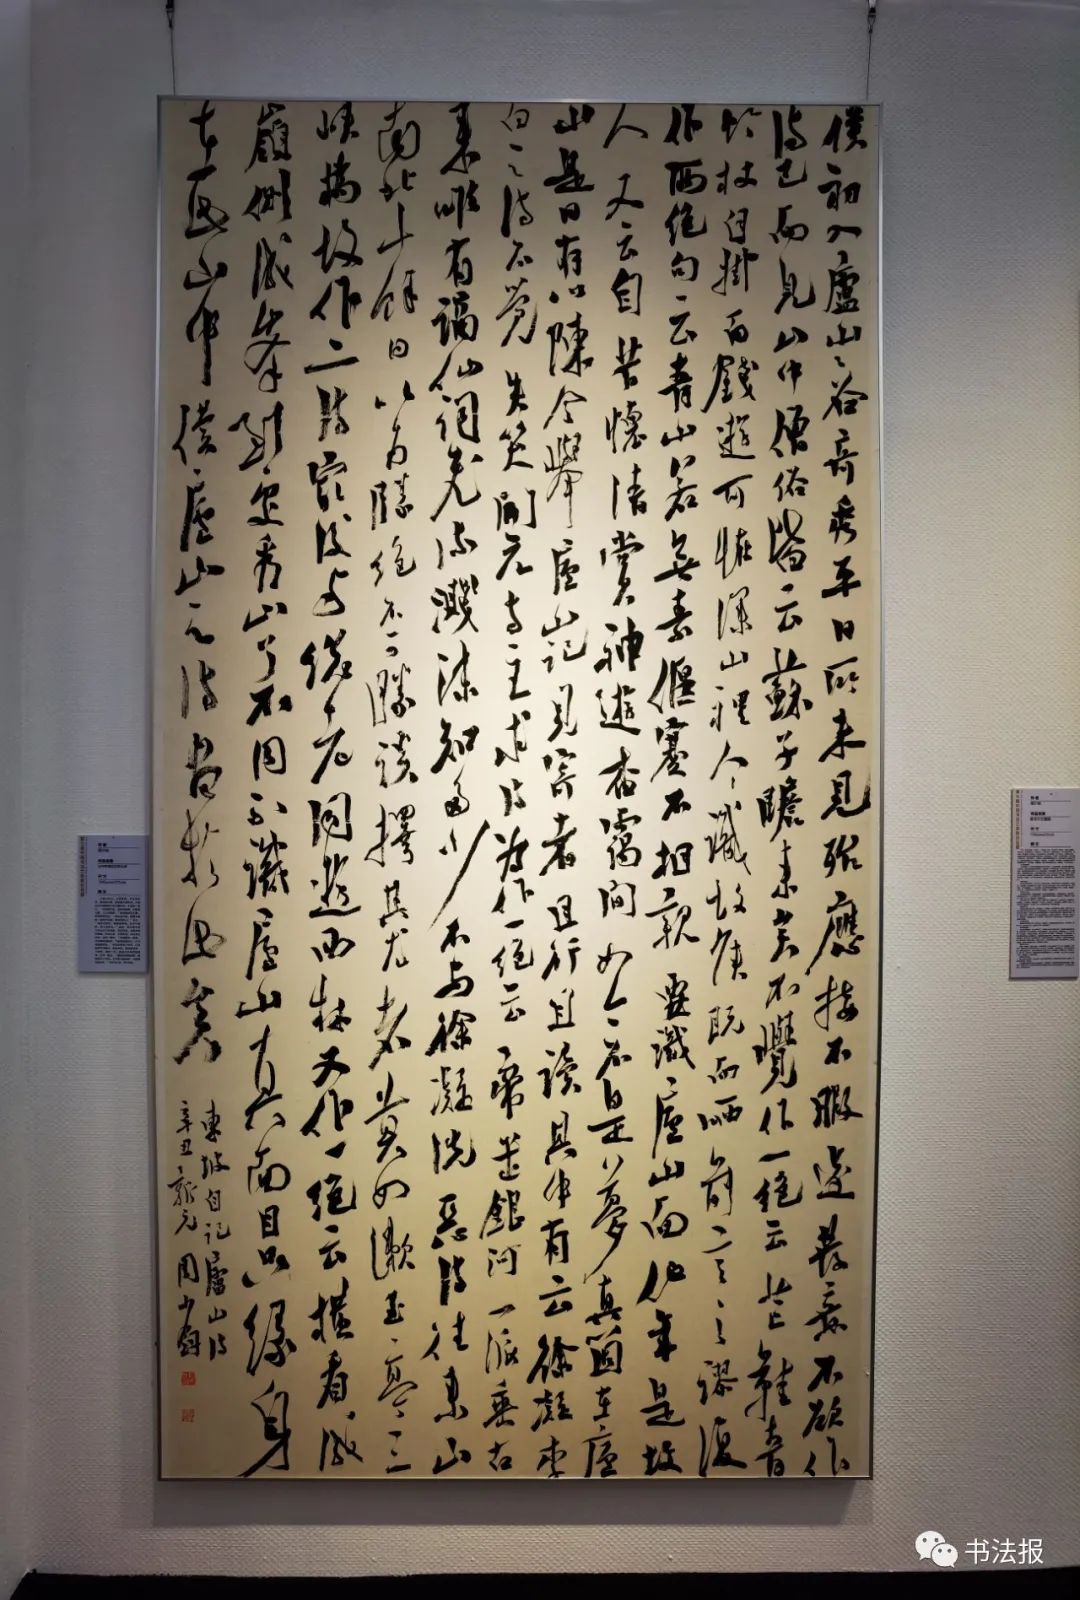 僕初入廬山〻谷奇秀平日所未見殆應接不暇遂發意不欲作
詩已而見山中僧俗皆云蘇子瞻来矣不覺作一絕云芒鞋青
竹杖自掛百錢遊可怪深山裡人〻識故侯既而哂前言之謬復
作兩絕句云青山若無素偃蹇不相親要識廬山面他年是故
人又云自昔懷清賞神遊杳靄間如今不是夢真箇在廬
山是日有以陳令舉廬山記見寄者且行且讀其中有云徐凝李
白之詩不覺失笑開元寺主求詩為作一絕云帝遣銀河一派垂古
來唯有謫仙詞飛流濺沫知多少不與徐凝洗惡詩往來山
南北十餘日以為勝絕不可勝談擇其尤者莫如漱玉亭三
峽橋故作二詩最後與總老同遊西林又作一絕云橫看成
嶺側成峰到處看山了不同不識廬山真面目只緣身
在此山中僕廬山之詩盡於此矣
東坡自記廬山詩
辛丑新元周少劍
书法报